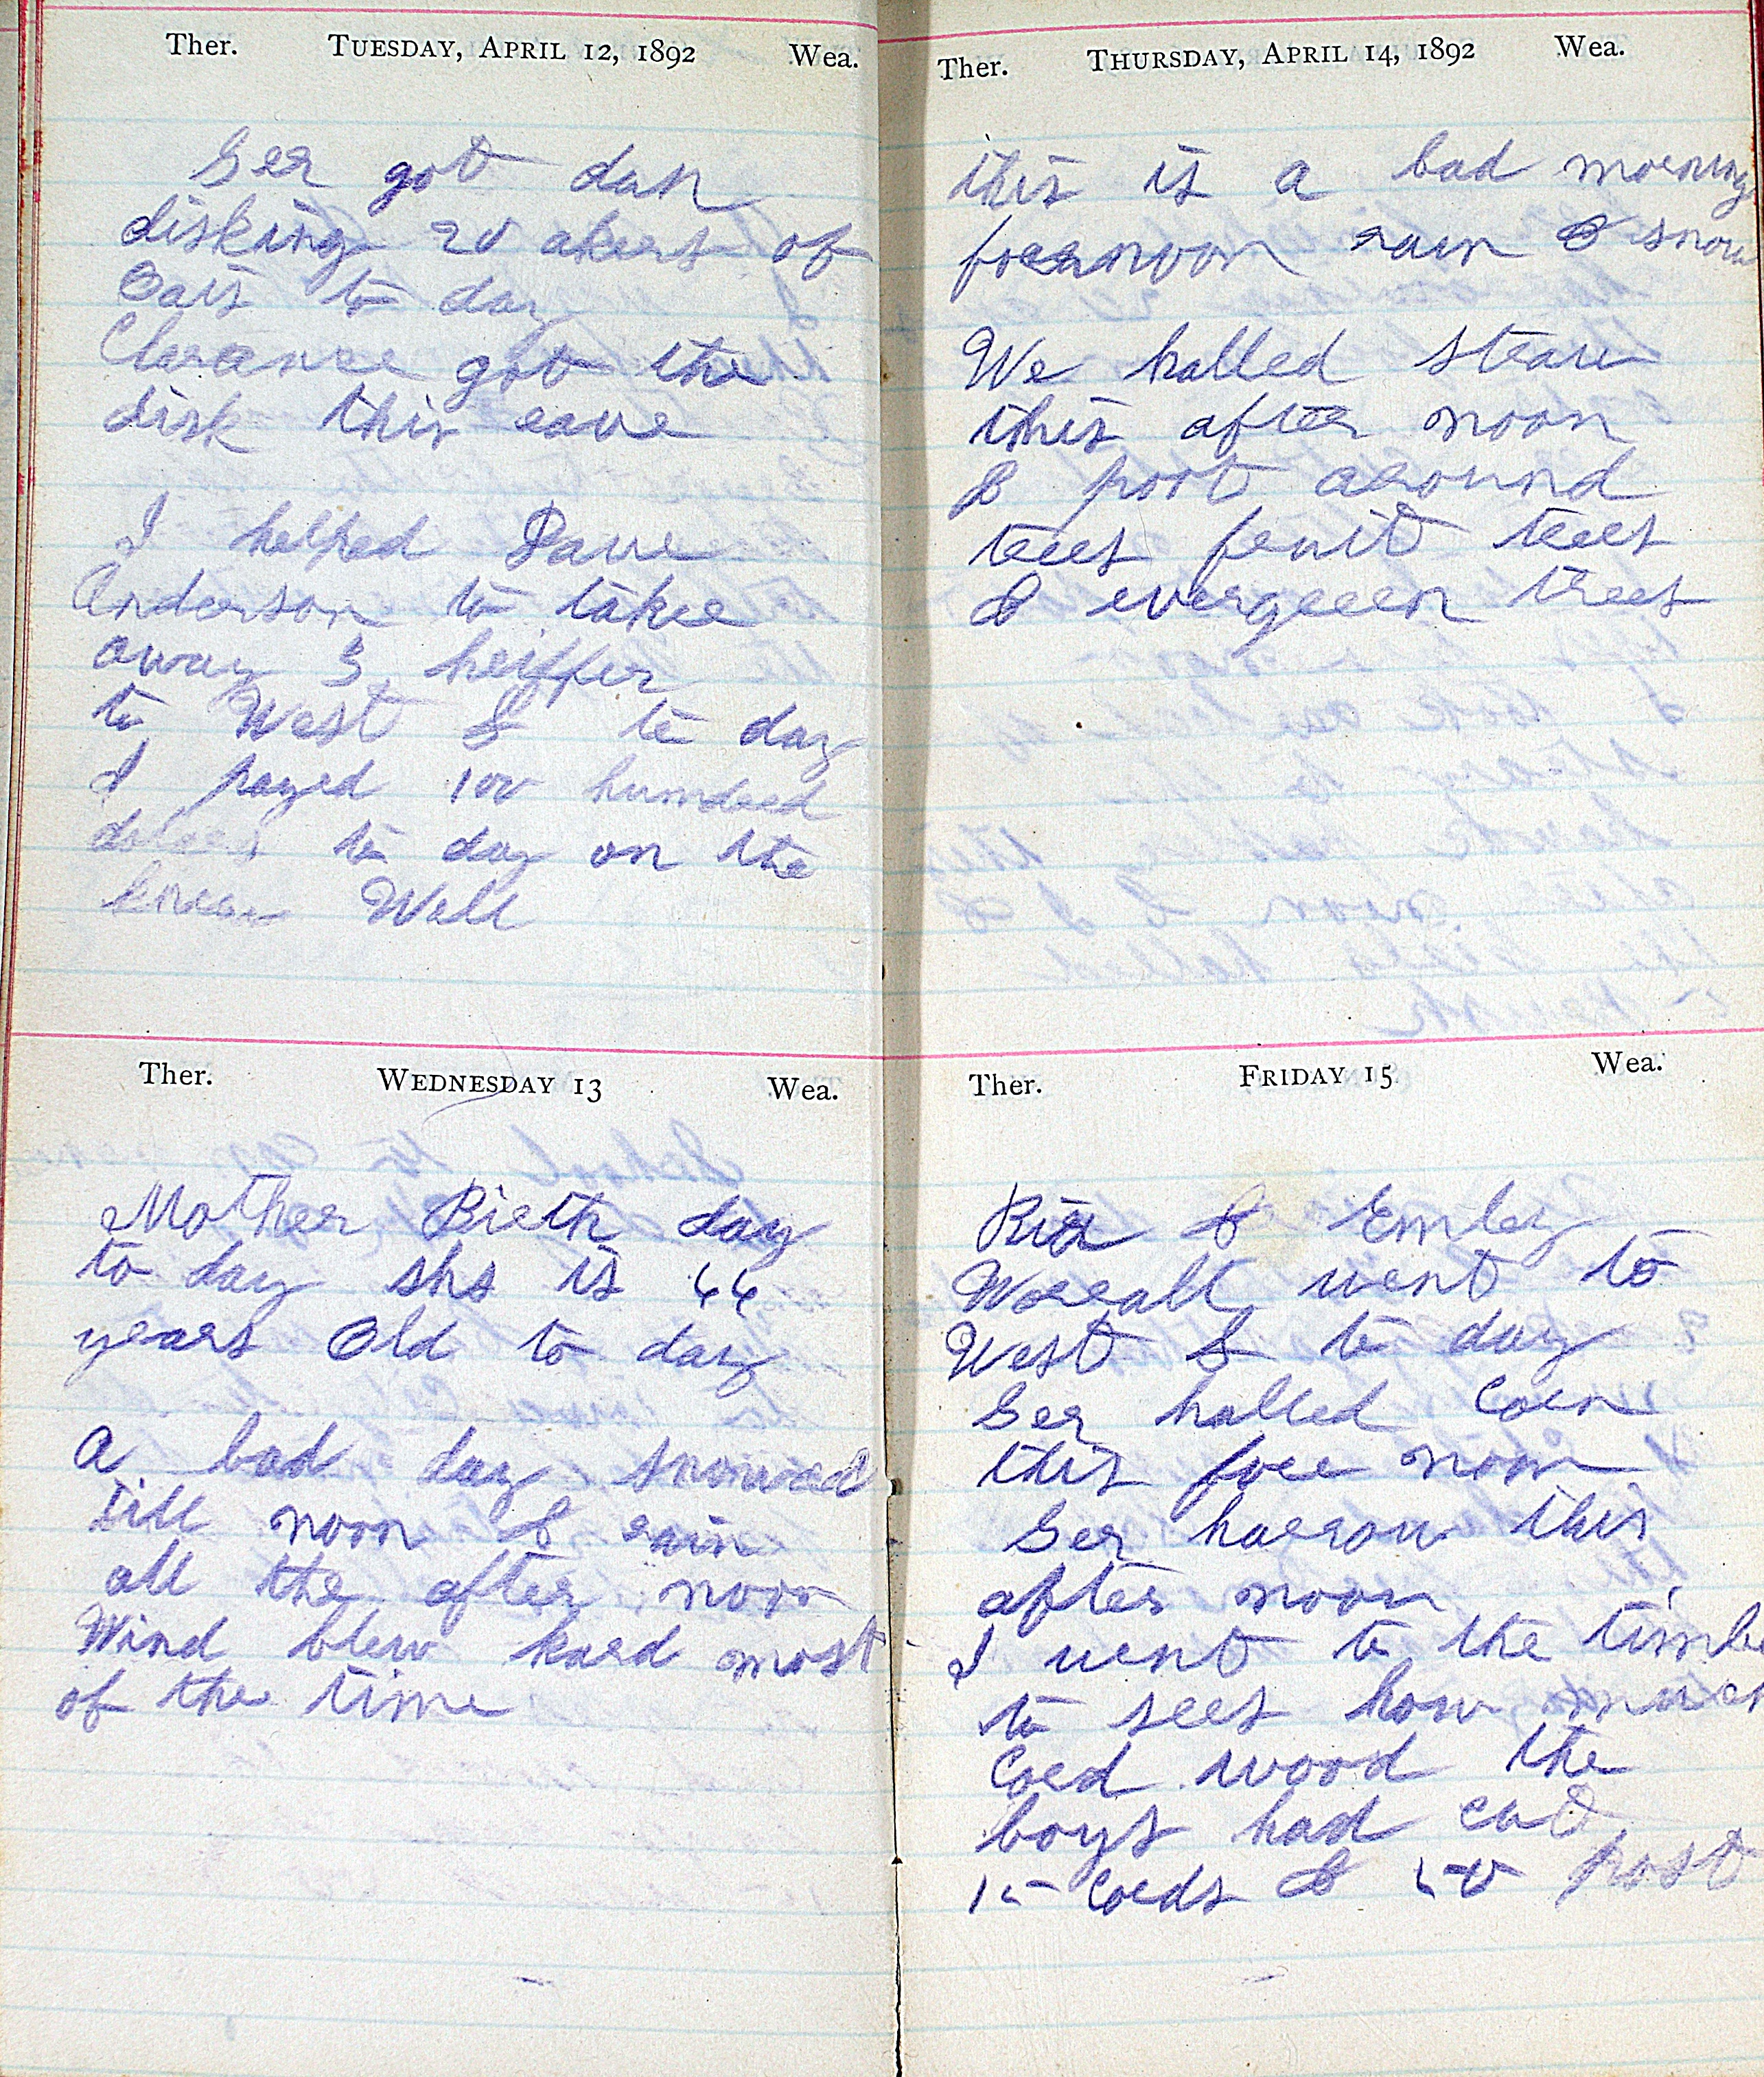 Ther. TUESDAY, APRIL 12, 1892 Wea.
Ger got dun
disking 20 akers of
Oats to day
Clarance got the
disk this eave
I helped Dave
Anderson to take
away 3 heiffer
to West L to day
I payed 100 hundred
to day on the
Well
Ther. WEDNESDAY 13 Wea.
Mother Birth day
to day she is 44
years Old to day
A bad day snowed
till noon & rain
all the after noon
Wind blew hard most
of the time
Ther. THURSDAY, APRIL 14, 1892 Wea.
this is a bad morning
forenoon rain & snow
We halled straw
this after noon
& port around
trees fruit trees
& evergreen trees
Ther. FRIDAY 15 Wea.
& Emley
Worrall went to
West L to day
Ger halled Corn
this fore noon
Ger harrow this
after noon
I went to the timbe
to sees how much
Cord wood the
boys had cut
15 Cords & 50 post